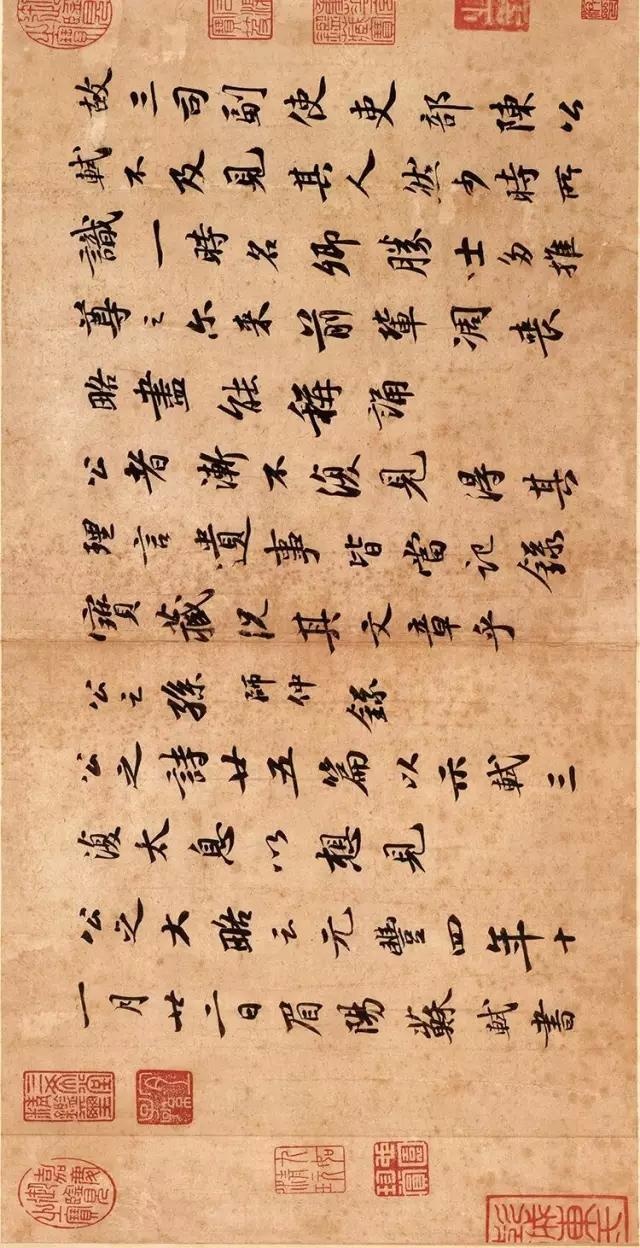 故三司副使吏部陳公
軾不及見其人然少時所
識一時名卿勝士多推
尊之尔来前輩凋喪
略盡能稱誦
公者漸不復見得其
理言遺事皆當記錄
寶藏況其文章乎
公之孫師仲錄
公之詩廿五篇以示軾三
復太息以想見
公之大略云元豐四年十
一月廿二日眉陽蘇軾書
嘉慶御覽之寶